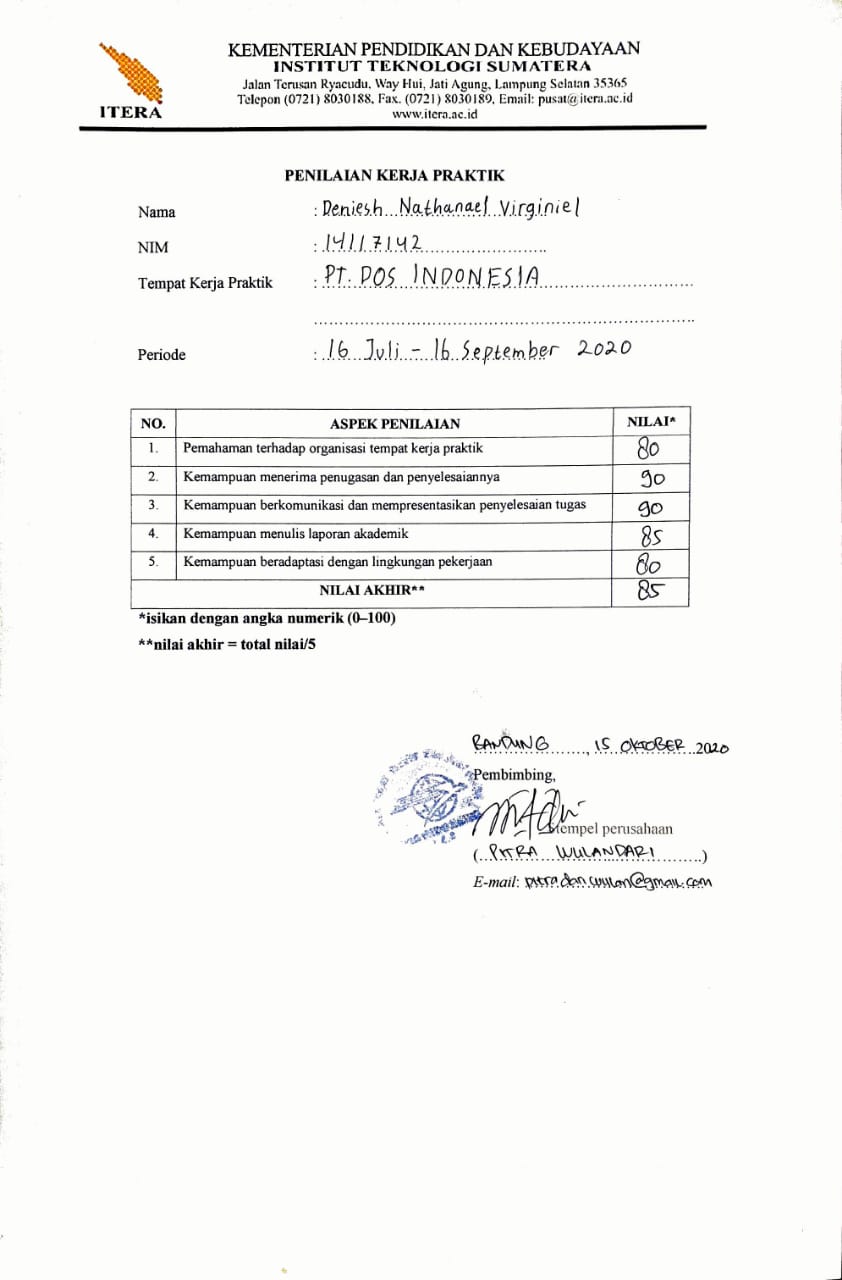 ITERA
KEMENTERIAN PENDIDIKAN DAN KEBUDAYAAN
INSTITUT TEKNOLOGI SUMATERA
Jalan Terusan Ryacudu, Way Hui, Jati Agung, Lampung Selatan 35365
Telepon (0721) 8030188, Fax. (0721) 8030189, Email: pusat@itera.ac.id
www.itera.ac.id
PENILAIAN KERJA PRAKTIK
Nama : Deniesh Nathanael Virginiel
NIM : 14117142
Tempat Kerja Praktik : PT. POS INDONESIA
Periode : 16 Juli - 16 September 2020
NO. ASPEK PENILAIAN NILAI*
1. Pemahaman terhadap organisasi tempat kerja praktik 80
2. Kemampuan menerima penugasan dan penyelesaiannya 90
3. Kemampuan berkomunikasi dan mempresentasikan penyelesaian tugas 90
4. Kemampuan menulis laporan akademik 85
5. Kemampuan beradaptasi dengan lingkungan pekerjaan 80
NILAI AKHIR** 85
*isikan dengan angka numerik (0–100)
**nilai akhir = total nilai/5
BANDUNG, 15 OKTOBER 2020
Pembimbing,
tempel perusahaan
(PITRA WULANDARI)
E-mail: